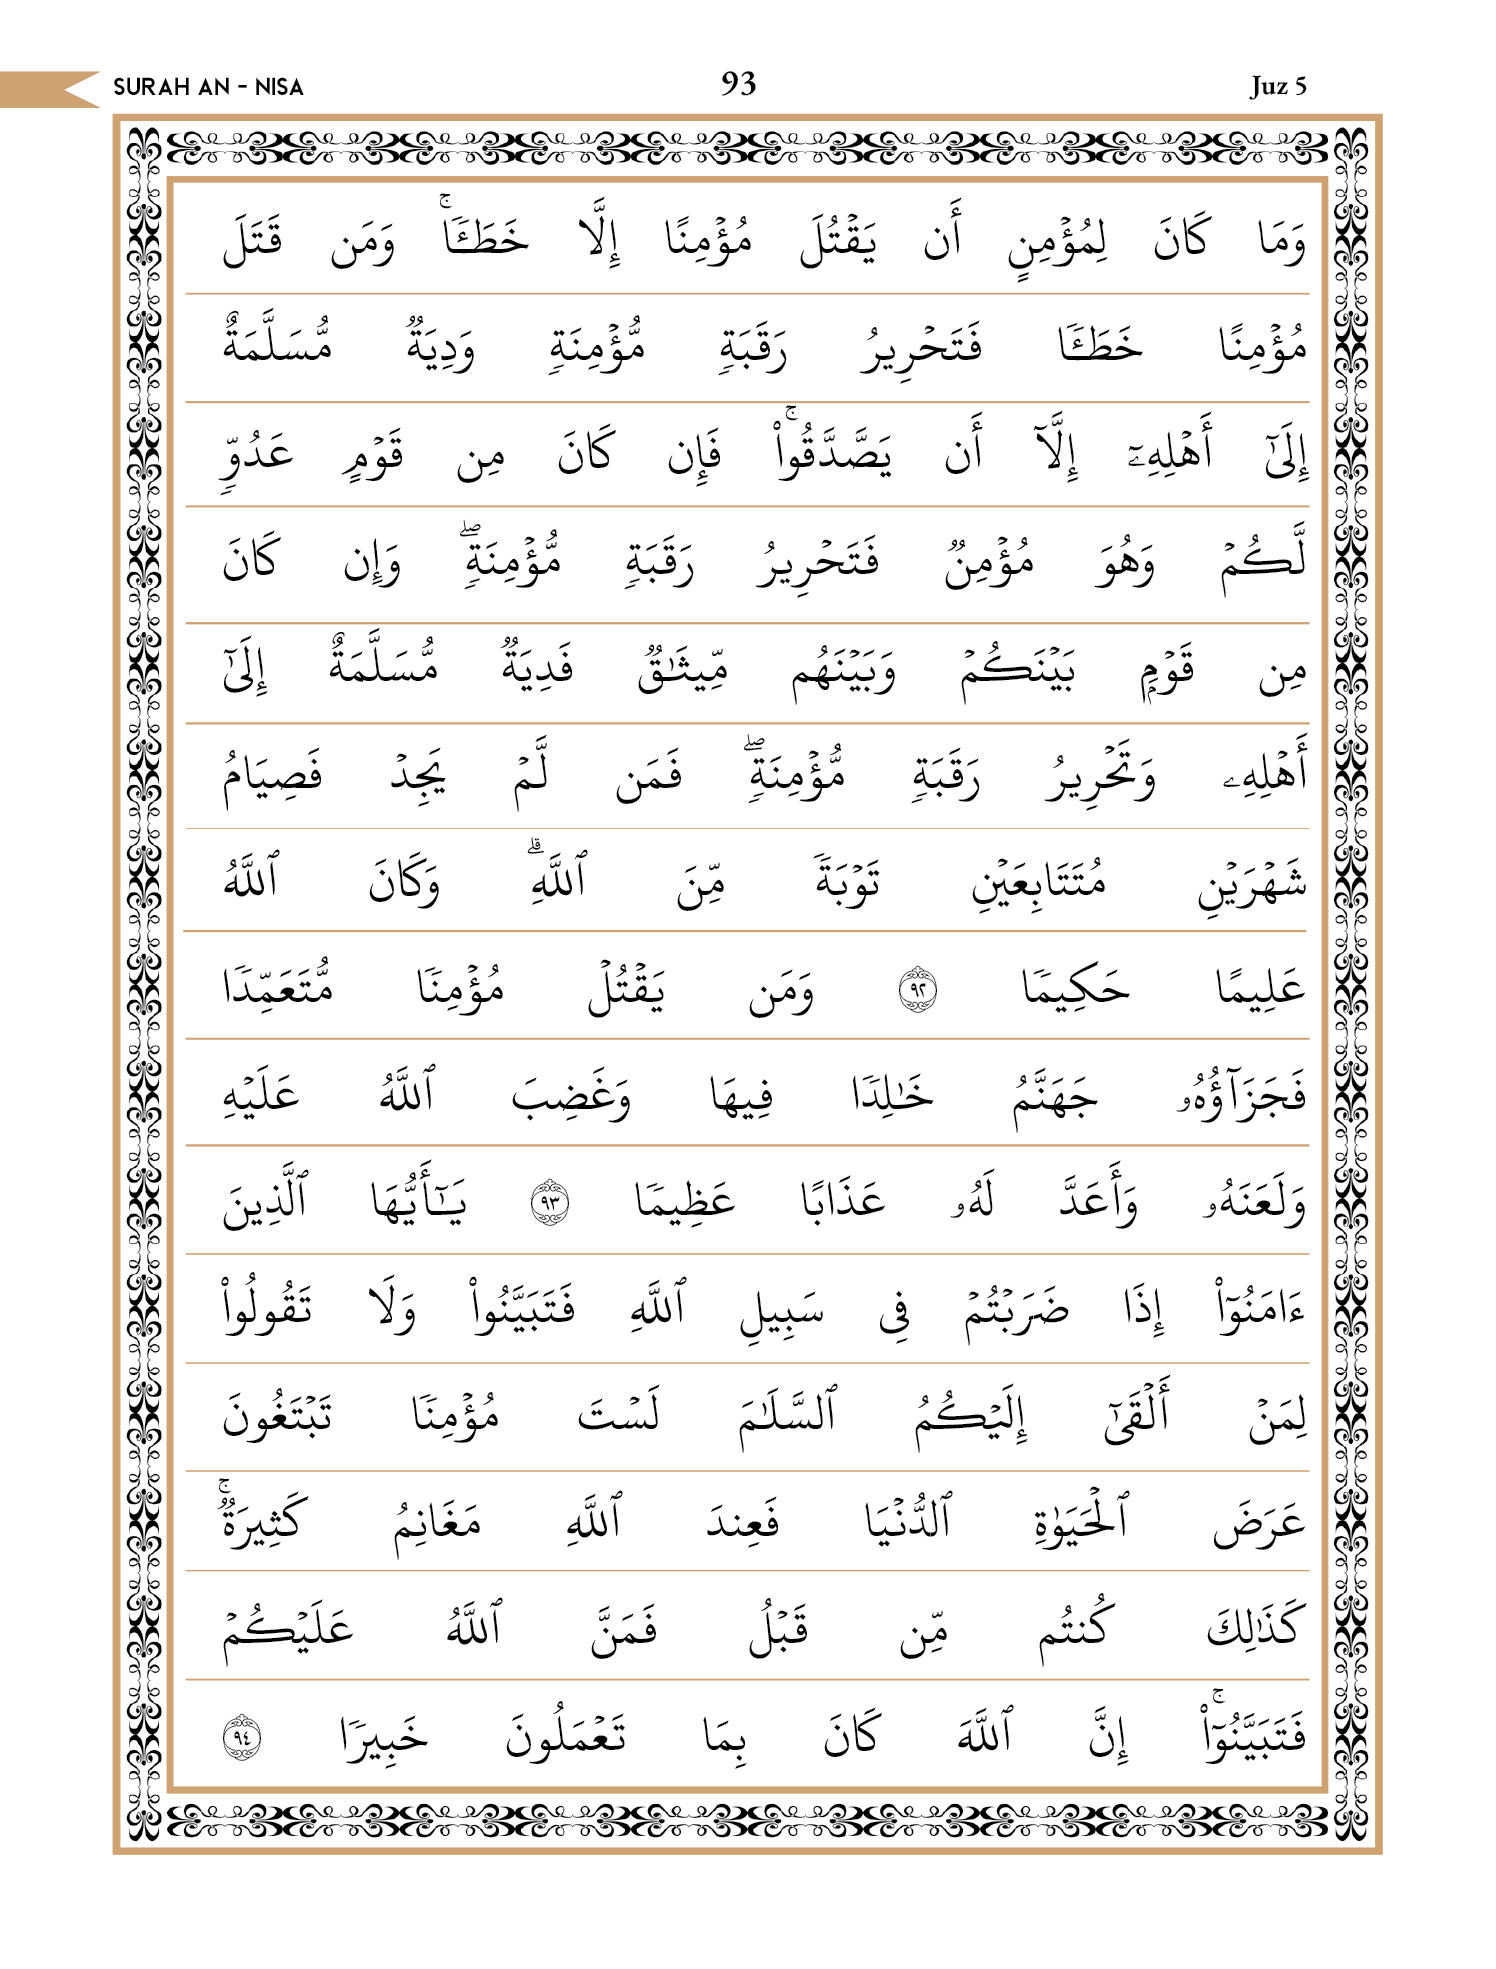 SURAH AN - NISA 93 Juz 5
وَمَا كَانَ لِمُؤۡمِنٍ أَن يَقۡتُلَ مُؤۡمِنًا إِلَّا خَطَـٔٗاۚ وَمَن قَتَلَ
مُؤۡمِنًا خَطَـٔٗا فَتَحۡرِيرُ رَقَبَةٖ مُّؤۡمِنَةٖ وَدِيَةٞ مُّسَلَّمَةٌ
إِلَىٰٓ أَهۡلِهِۦٓ إِلَّآ أَن يَصَّدَّقُواْۚ فَإِن كَانَ مِن قَوۡمٍ عَدُوّٖ
لَّكُمۡ وَهُوَ مُؤۡمِنٞ فَتَحۡرِيرُ رَقَبَةٖ مُّؤۡمِنَةٖۖ وَإِن كَانَ
مِن قَوۡمِۭ بَيۡنَكُمۡ وَبَيۡنَهُم مِّيثَٰقٞ فَدِيَةٞ مُّسَلَّمَةٌ إِلَىٰٓ
أَهۡلِهِۦ وَتَحۡرِيرُ رَقَبَةٖ مُّؤۡمِنَةٖۖ فَمَن لَّمۡ يَجِدۡ فَصِيَامُ
شَهۡرَيۡنِ مُتَتَابِعَيۡنِ تَوۡبَةٗ مِّنَ ٱللَّهِۗ وَكَانَ ٱللَّهُ
عَلِيمًا حَكِيمٗا ٩٢ وَمَن يَقۡتُلۡ مُؤۡمِنٗا مُّتَعَمِّدٗا
فَجَزَآؤُهُۥ جَهَنَّمُ خَٰلِدٗا فِيهَا وَغَضِبَ ٱللَّهُ عَلَيۡهِ
وَلَعَنَهُۥ وَأَعَدَّ لَهُۥ عَذَابًا عَظِيمٗا ٩٣ يَٰٓأَيُّهَا ٱلَّذِينَ
ءَامَنُوٓاْ إِذَا ضَرَبۡتُمۡ فِي سَبِيلِ ٱللَّهِ فَتَبَيَّنُواْ وَلَا تَقُولُواْ
لِمَنۡ أَلۡقَىٰٓ إِلَيۡكُمُ ٱلسَّلَٰمَ لَسۡتَ مُؤۡمِنٗا تَبۡتَغُونَ
عَرَضَ ٱلۡحَيَوٰةِ ٱلدُّنۡيَا فَعِندَ ٱللَّهِ مَغَانِمُ كَثِيرَةٞۚ
كَذَٰلِكَ كُنتُم مِّن قَبۡلُ فَمَنَّ ٱللَّهُ عَلَيۡكُمۡ
فَتَبَيَّنُوٓاْۚ إِنَّ ٱللَّهَ كَانَ بِمَا تَعۡمَلُونَ خَبِيرٗا ٩٤